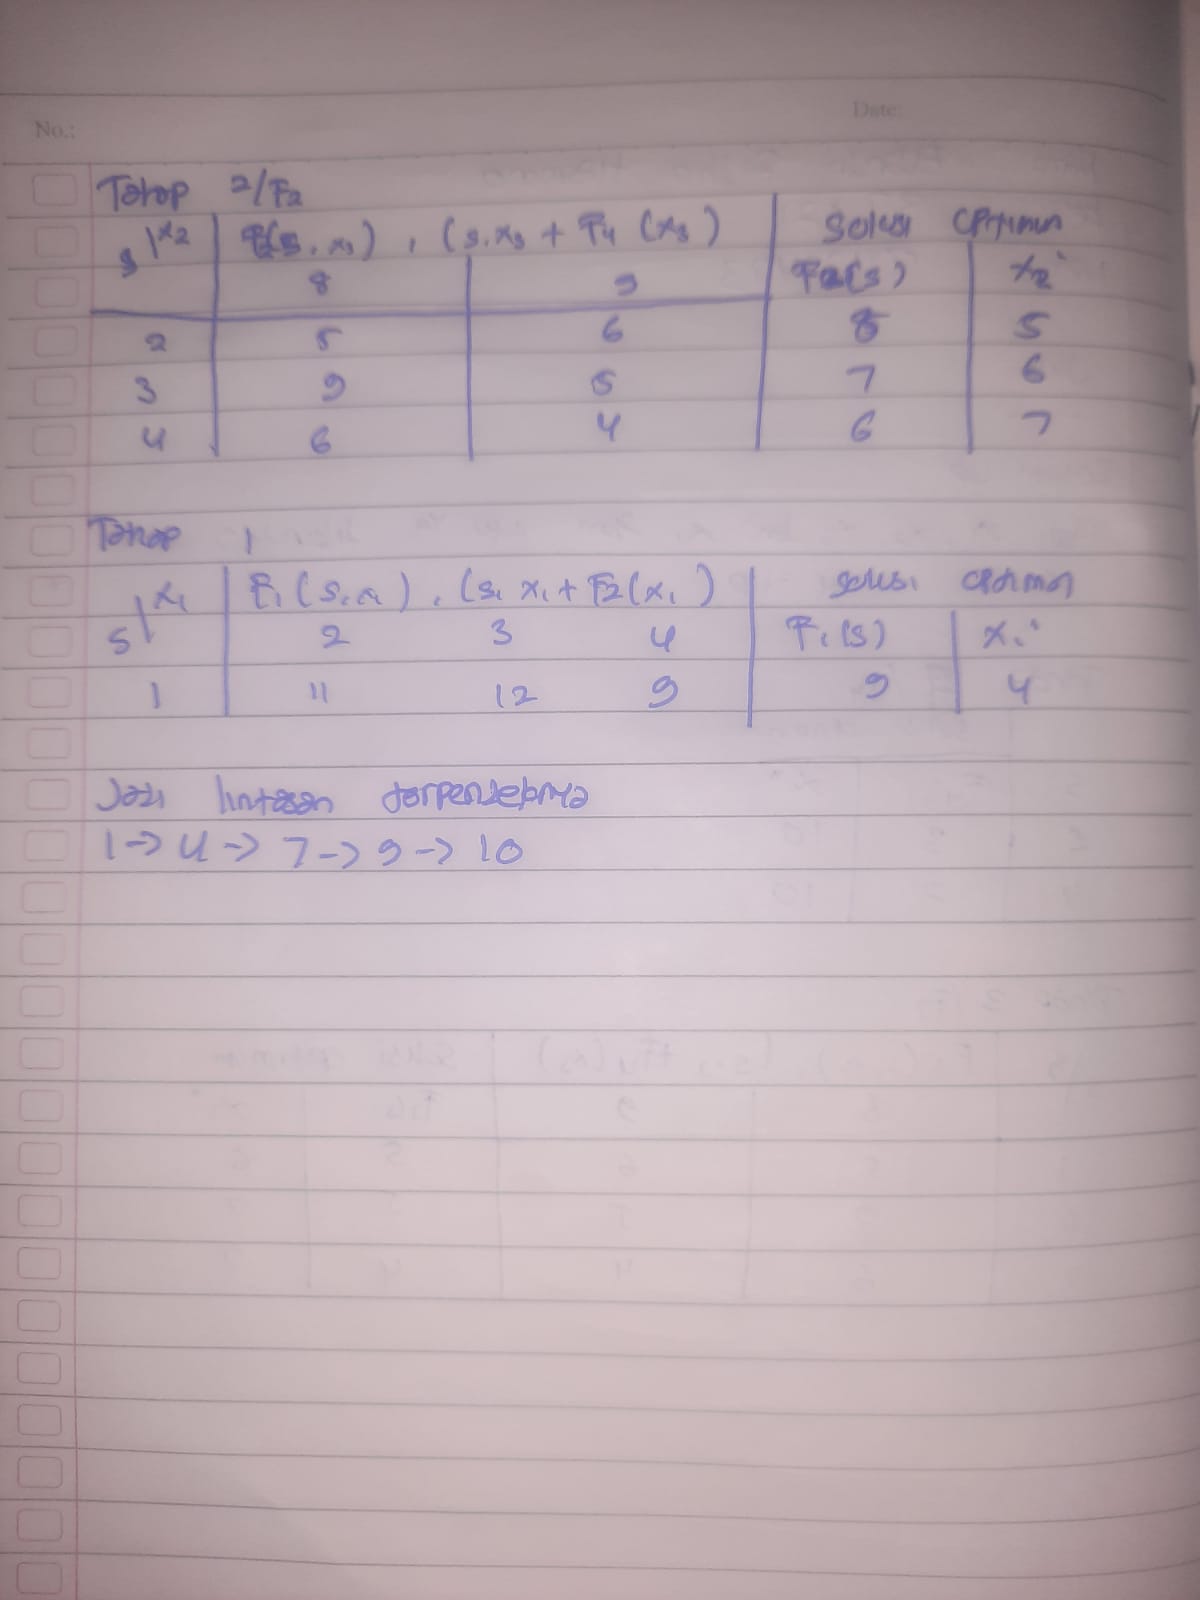 No.:
Date:
Tahap 2/F2
s | x2 F2(s, x3), (s, x3 + F4 (x3) Solusi Optimum
8 9 F2(s) x2*
2 5 6 8 5
3 9 5 7 6
4 6 4 6 7
Tahap 1
s | x1 F1 (s, x1), (s1 x1 + F2(x1) solusi optimum
2 3 4 F1(s) x1*
1 11 12 9 9 4
Jadi lintasan terpendeknya
1 -> 4 -> 7 -> 9 -> 10